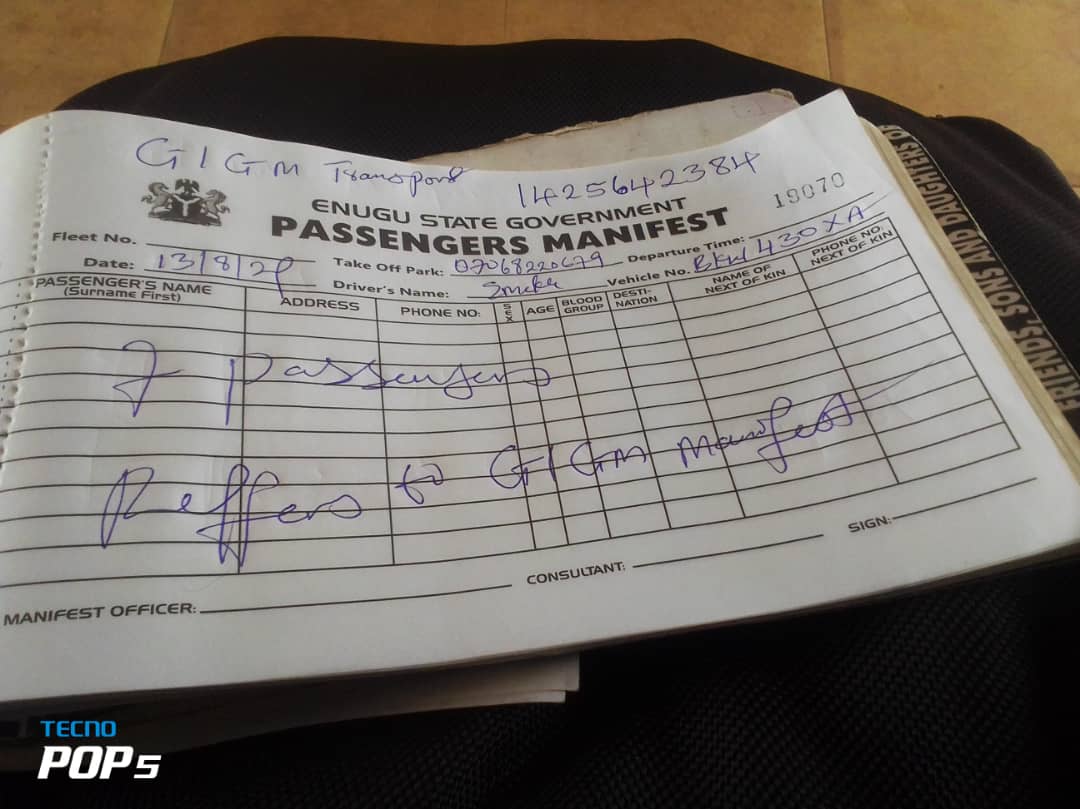 GIGM Transport 1425642384
19070
ENUGU STATE GOVERNMENT
PASSENGERS MANIFEST
Fleet No. Departure Time:
Date: 13/8/2 Take Off Park: 07068220679 Vehicle No. BKW 430 XA
Driver's Name:
PASSENGER'S NAME (Surname First) ADDRESS PHONE NO: SEX AGE BLOOD GROUP DESTI-NATION NAME OF NEXT OF KIN PHONE NO. NEXT OF KIN
7 Passengers
Reffers to GIGM Manifest
MANIFEST OFFICER: CONSULTANT: SIGN:
FRIENDS, SONS AND DAUGHTERS OF
TECNO
POP 5